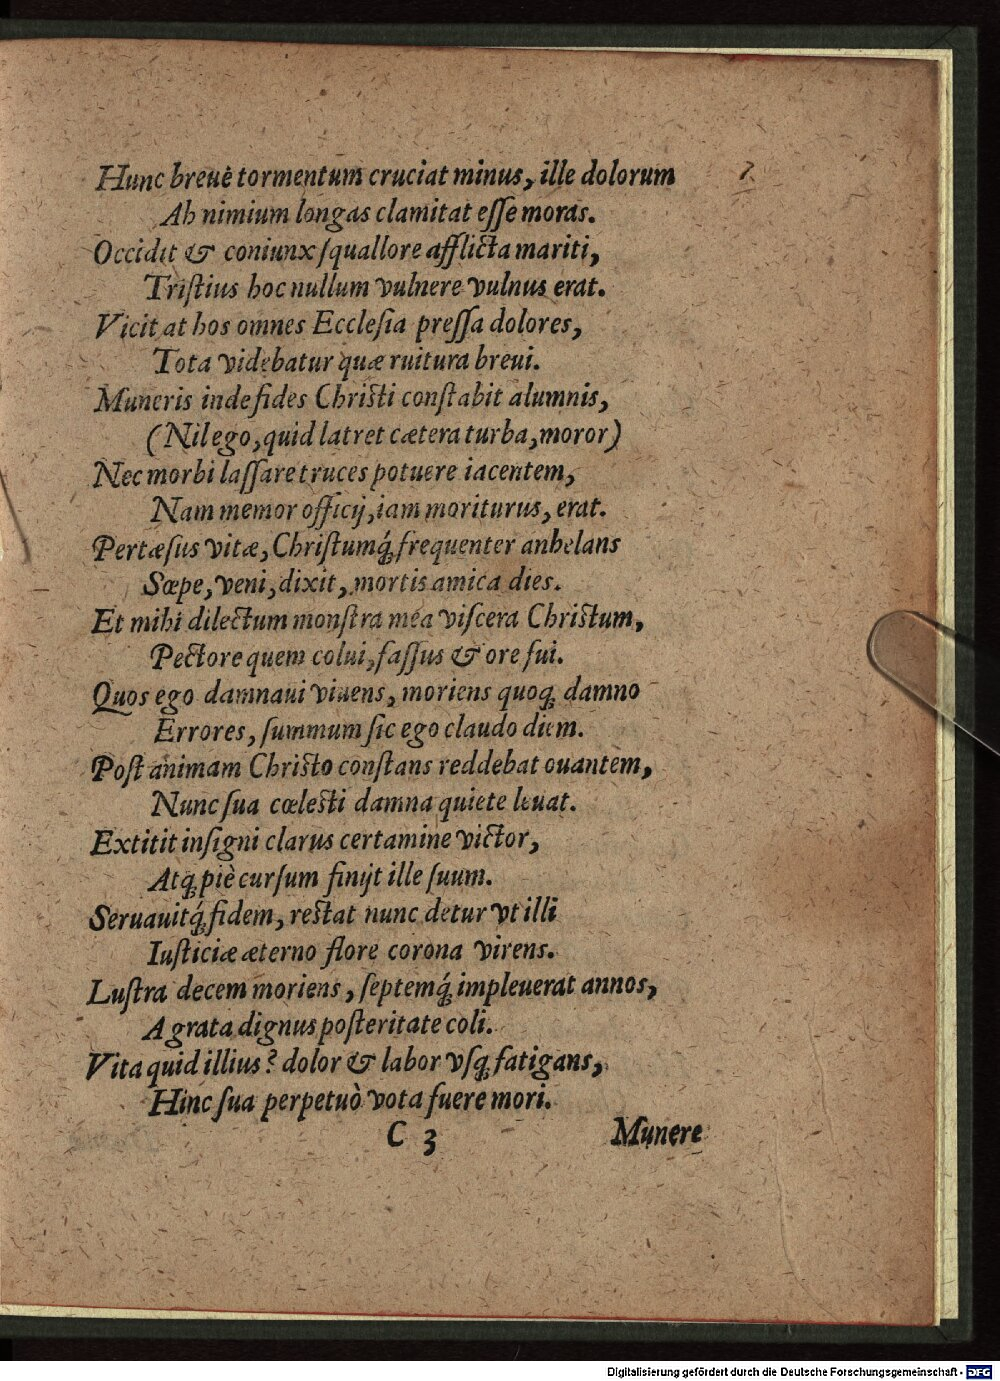 Hunc breue tormentum cruciat minus, ille dolorum
Ah nimium longas clamitat eſſe moras.
Occidit & coniunx ſquallore afflicta mariti,
Triſtius hoc nullum vulnere vulnus erat.
Vicit at hos omnes Eccleſia preſſa dolores,
Tota videbatur quæ ruitura breui.
Muneris inde fides Chriſti conſtabit alumnis,
(Nil ego, quid latret cætera turba, moror)
Nec morbi laſſare truces potuere iacentem,
Nam memor officij, iam moriturus, erat.
Pertæſus vitæ, Chriſtumq́; frequenter anhelans
Sæpe, veni, dixit, mortis amica dies.
Et mihi dilectum monſtra mea viſcera Chriſtum,
Pectore quem colui, faſſus & ore fui.
Quos ego damnaui viuens, moriens quoq; damno
Errores, ſummum ſic ego claudo diem.
Poſt animam Chriſto conſtans reddebat ouantem,
Nunc ſua cœleſti damna quiete leuat.
Extitit inſigni clarus certamine victor,
Atq; piè curſum finijt ille ſuum.
Seruauitq́; fidem, reſtat nunc detur vt illi
Iuſticiæ æterno flore corona virens.
Luſtra decem moriens, ſeptemq́; impleuerat annos,
A grata dignus poſteritate coli.
Vita quid illius? dolor & labor vſq; fatigans,
Hinc ſua perpetuò vota fuere mori.
C 3
Munere
Digitalisierung gefördert durch die Deutsche Forschungsgemeinschaft - DFG